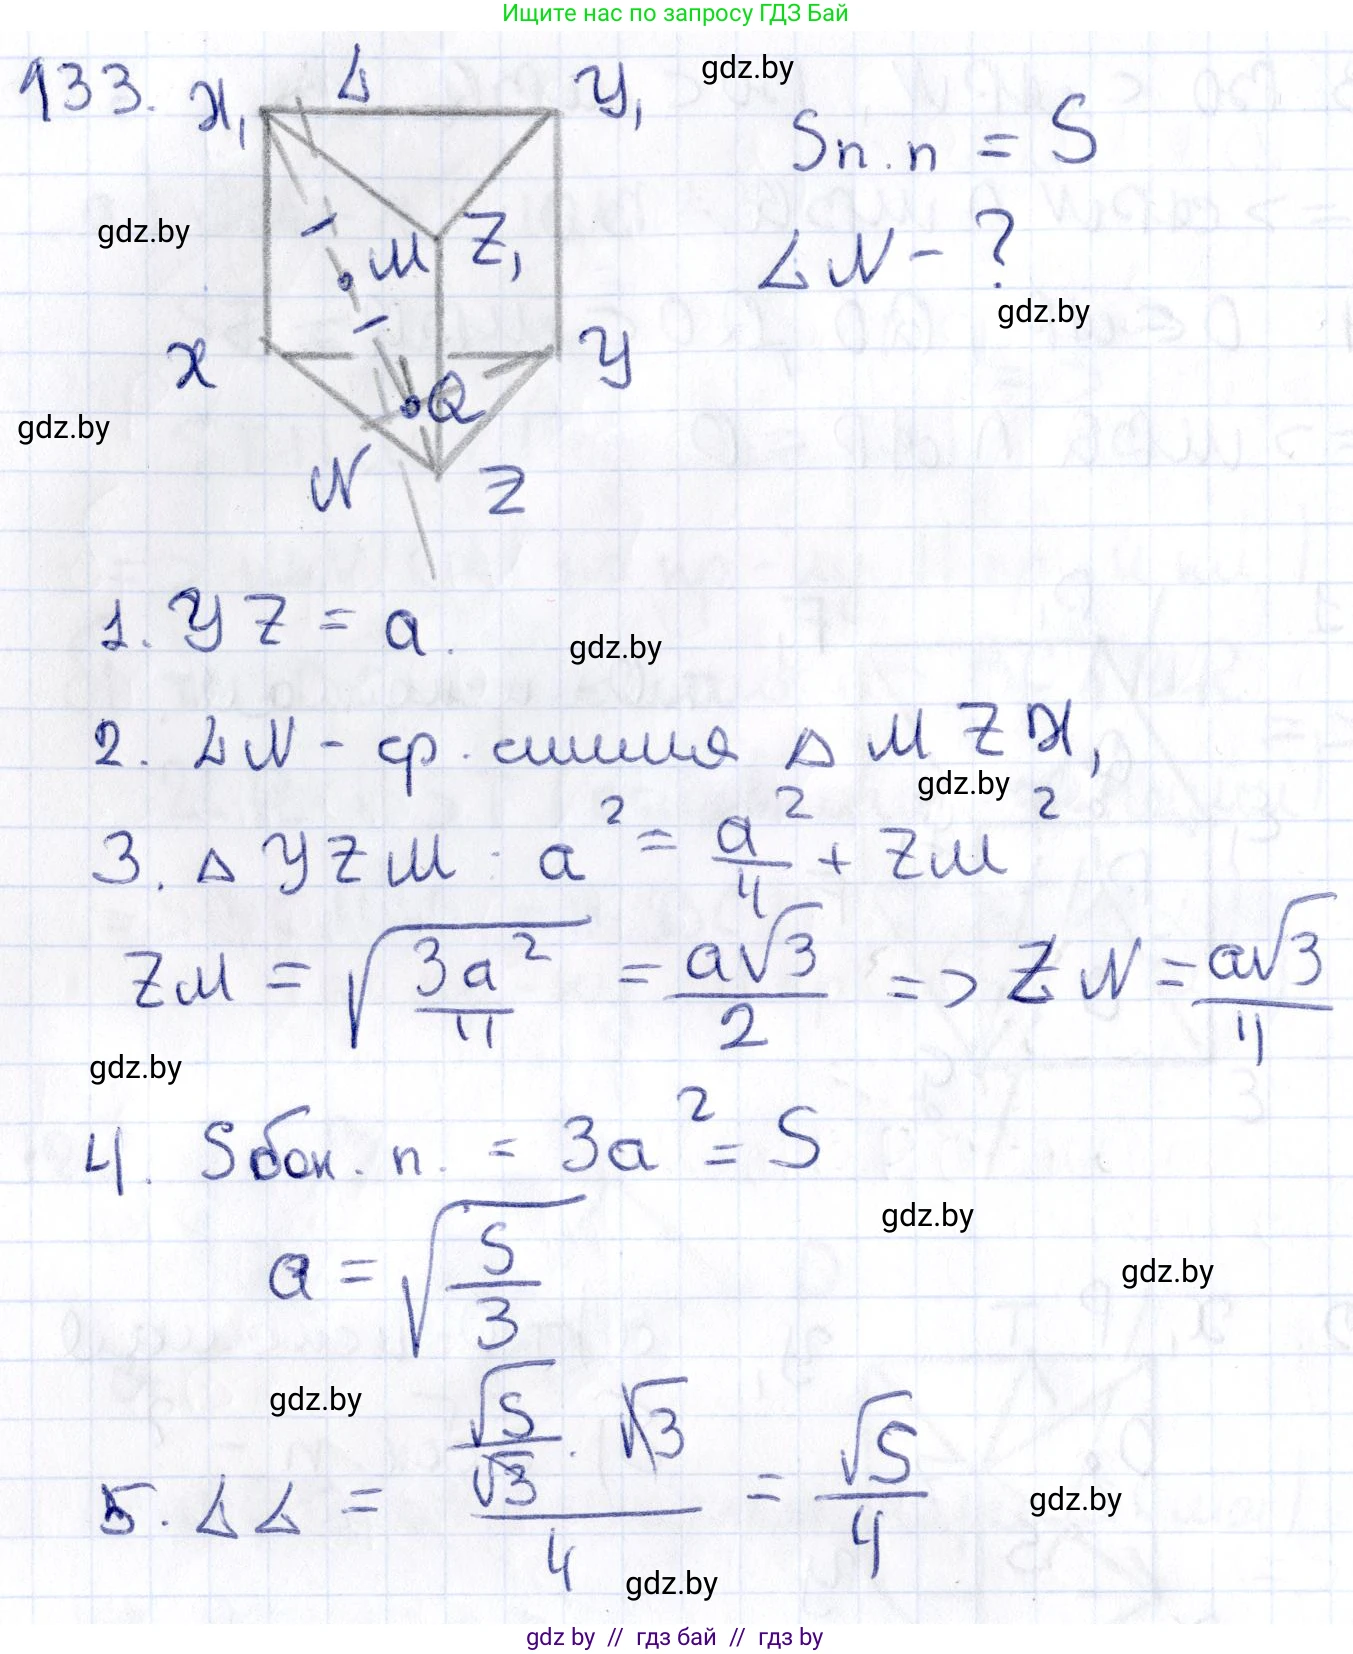 Ищите нас по запросу ГДЗ Бай
133.
X₁ L Y₁
gdz.by
Sп.п = S
gdz.by
M Z₁
LN - ?
gdz.by
X Y
gdz.by
Q
N Z
1. YZ = a.
gdz.by
2. LN - ср. линия △ MZX₁
gdz.by
3. △ YZM : a² = a²/4 + ZM²
ZM = √(3a²/4) = a√3/2 => ZN = a√3/4
gdz.by
4. Sбок. п. = 3a² = S
gdz.by
a = √(S/3)
gdz.by
gdz.by
5. LL = (√S/√3 · √3)/4 = √S/4
gdz.by
gdz.by
gdz by // гдз бай // гдз by